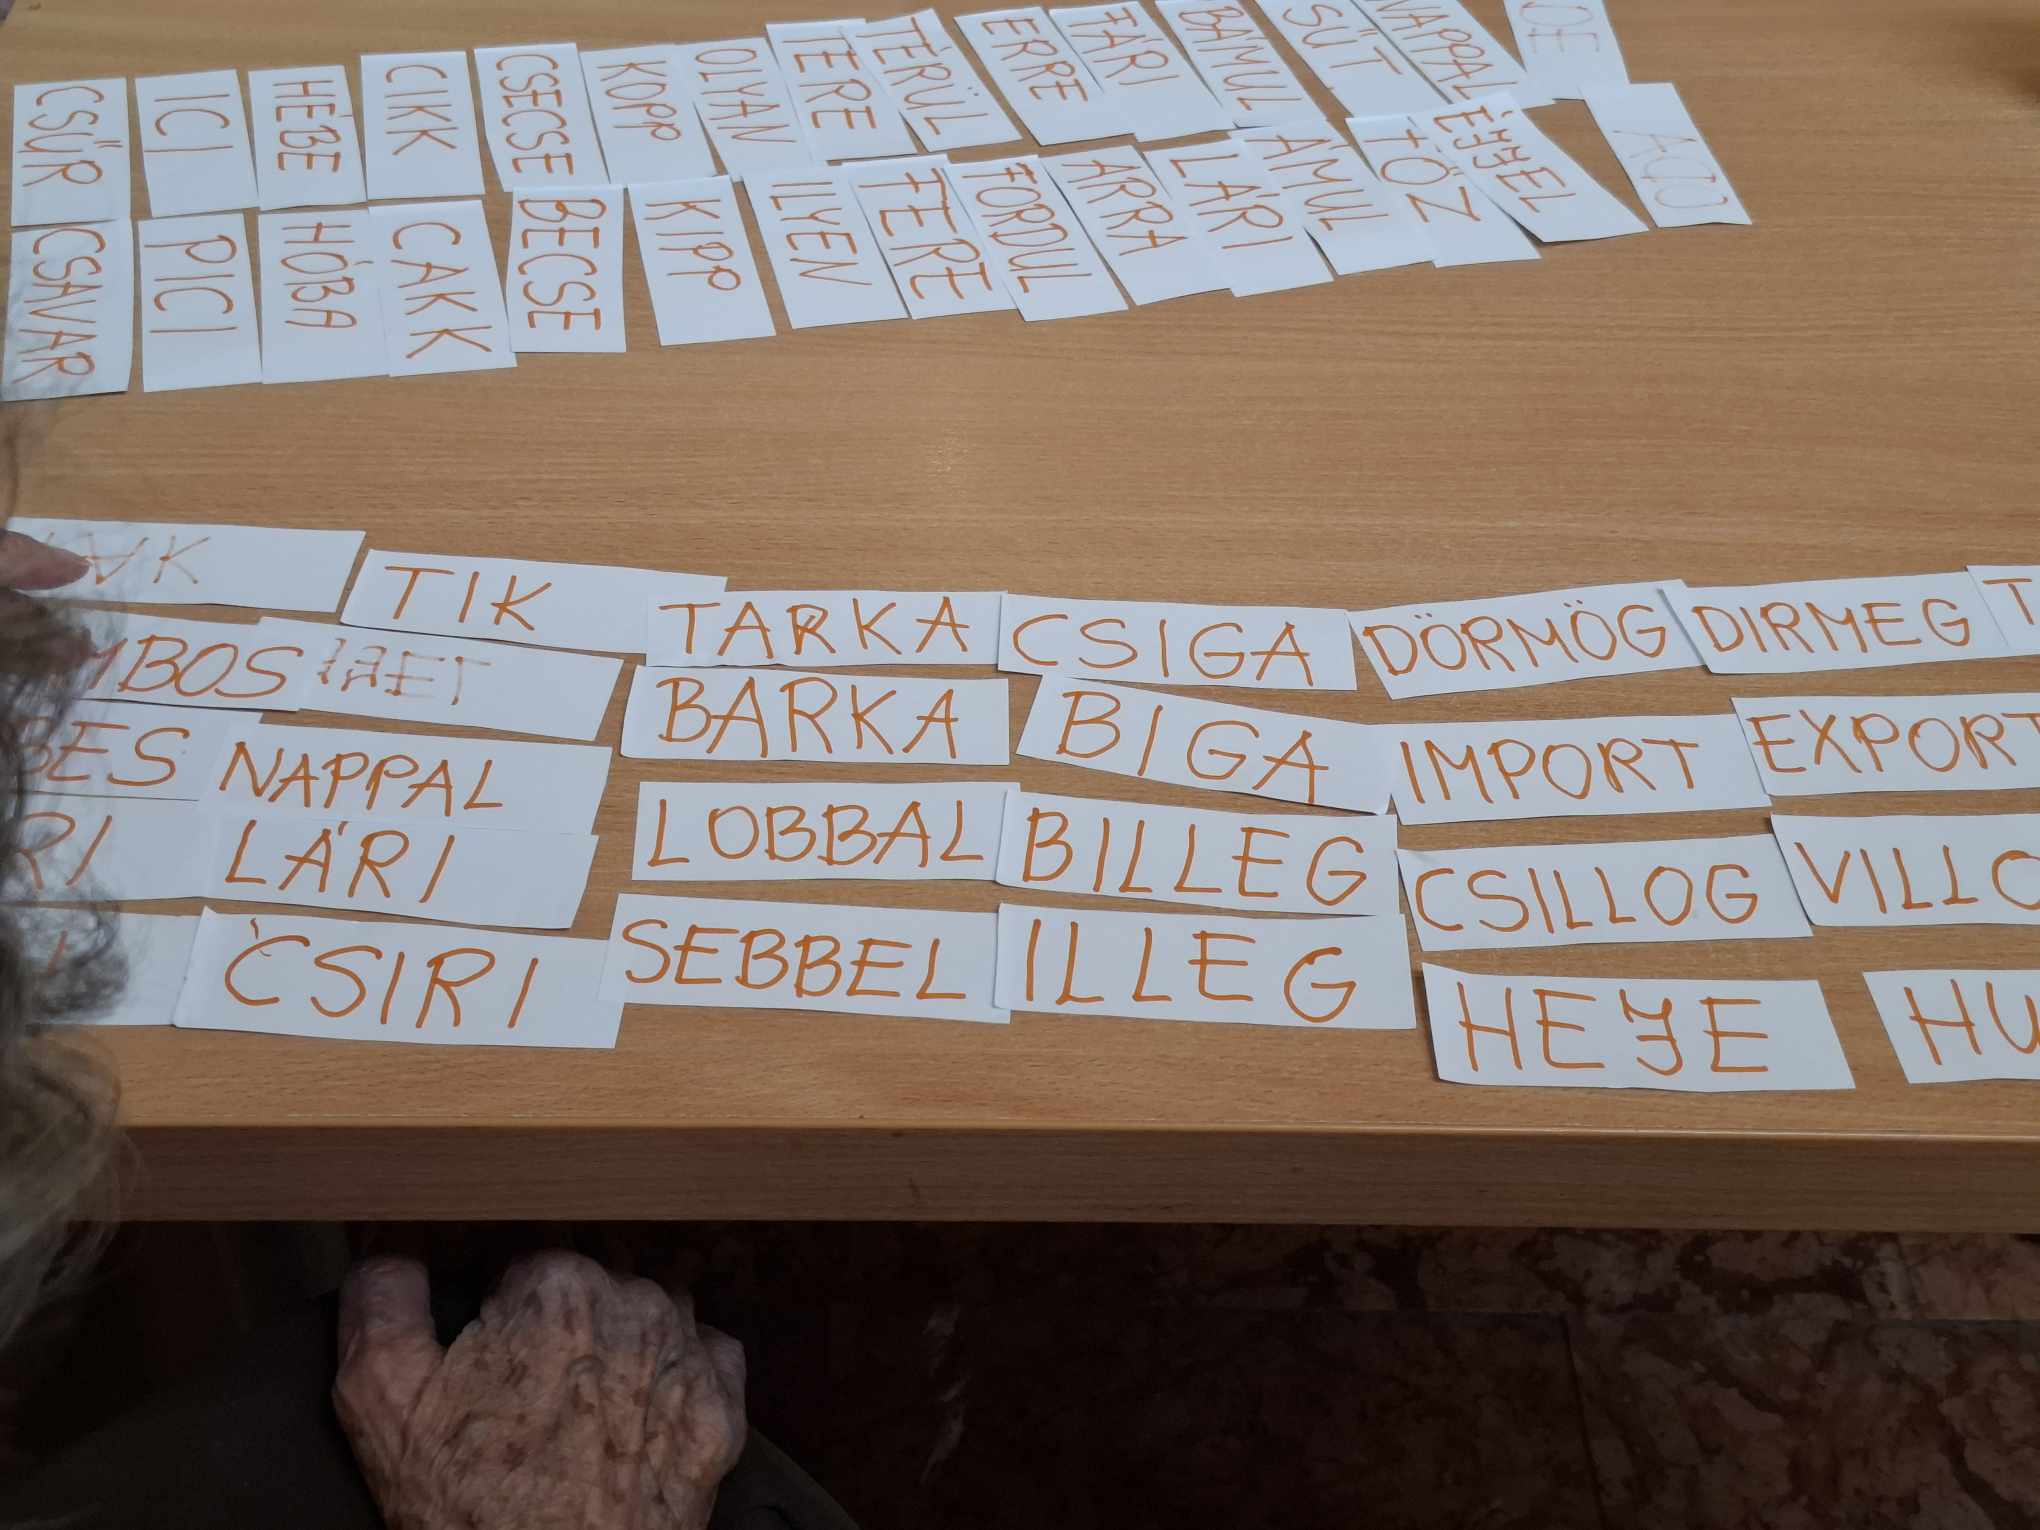 CSŰR ICI HÉBE CIKK CSECSE KOPP OLYAN TERE TÉRÜL ERRE TÁRI BÁMUL SÜT NAPPAL
CSAVAR PICI HÓBA CAKK BECSE KIPP ILYEN FERE FORDUL ARRA LÁRI ÁMUL TŐZ ÉJJEL
TIK TARKA CSIGA DÖRMÖG DIRMEG
MBOS BARKA BIGA IMPORT EXPORT
BES NAPPAL LOBBAL BILLEG CSILLOG VILLO
RI LÁRI SEBBEL ILLEG HEJE HU
CSIRI